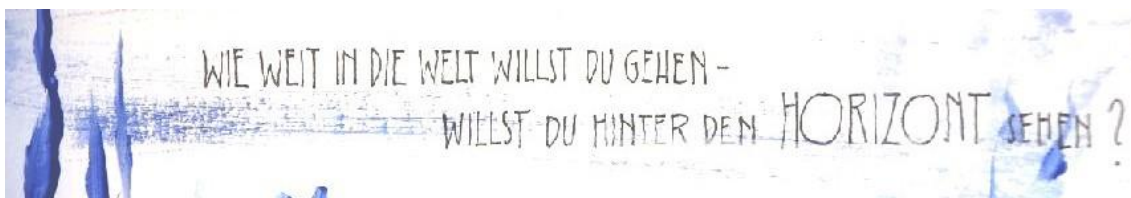 WIE WEIT IN DIE WELT WILLST DU GEHEN -
WILLST DU HINTER DEN HORIZONT SEHEN ?